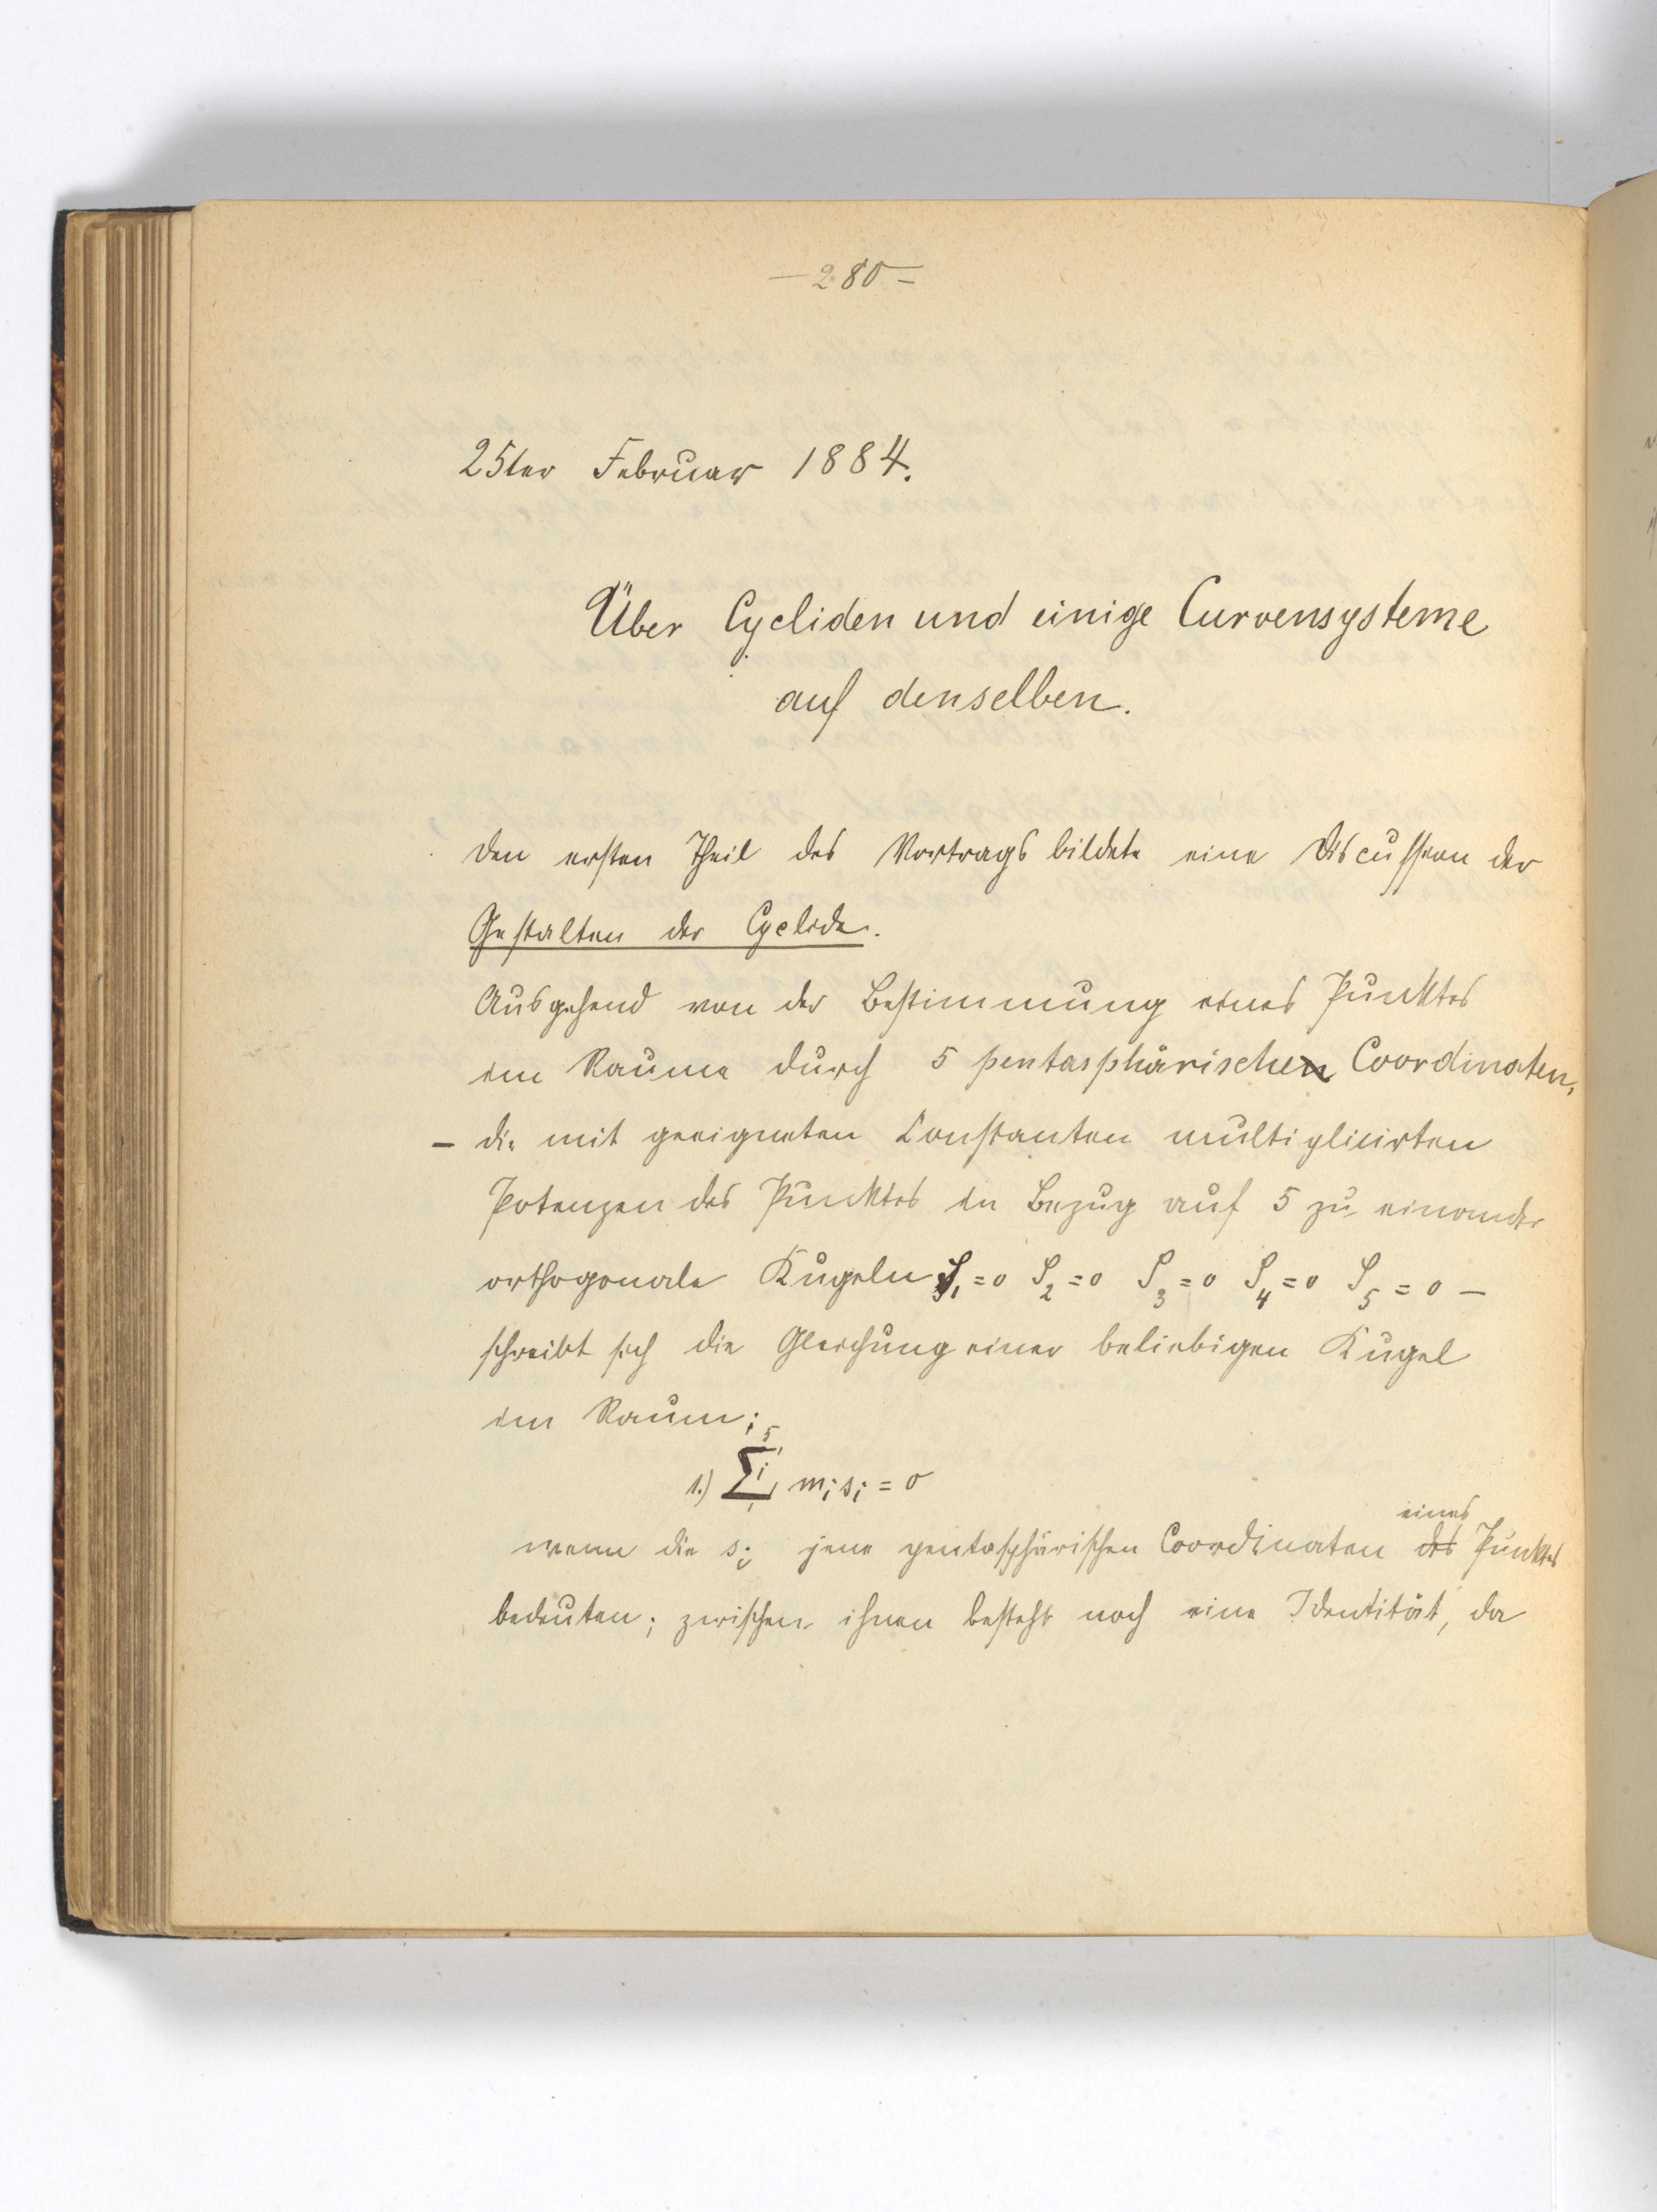 —280—
25ter Februar 1884.
Über Cycliden und einige Curvensysteme
auf denselben.
Den ersten Theil des Vortrags bildete eine Discussion der
Gestalten der Cyclide.
Ausgehend von der Bestimmung eines Punktes
im Raume durch 5 pentasphärischen Coordinaten,
– die mit geeigneten Constanten multiplicirten
Potenzen des Punktes in Bezug auf 5 zu einander
orthogonale Kugeln S₁=0 S₂=0 S₃=0 S₄=0 S₅=0 –
schreibt sich die Gleichung einer beliebigen Kugel
im Raum;
1.) ∑ᵢ₁⁵ mᵢsᵢ = 0
eines
wenn die sᵢ jene pentasphärischen Coordinaten des Punktes
bedeuten; zwischen ihnen besteht noch eine Identität, da